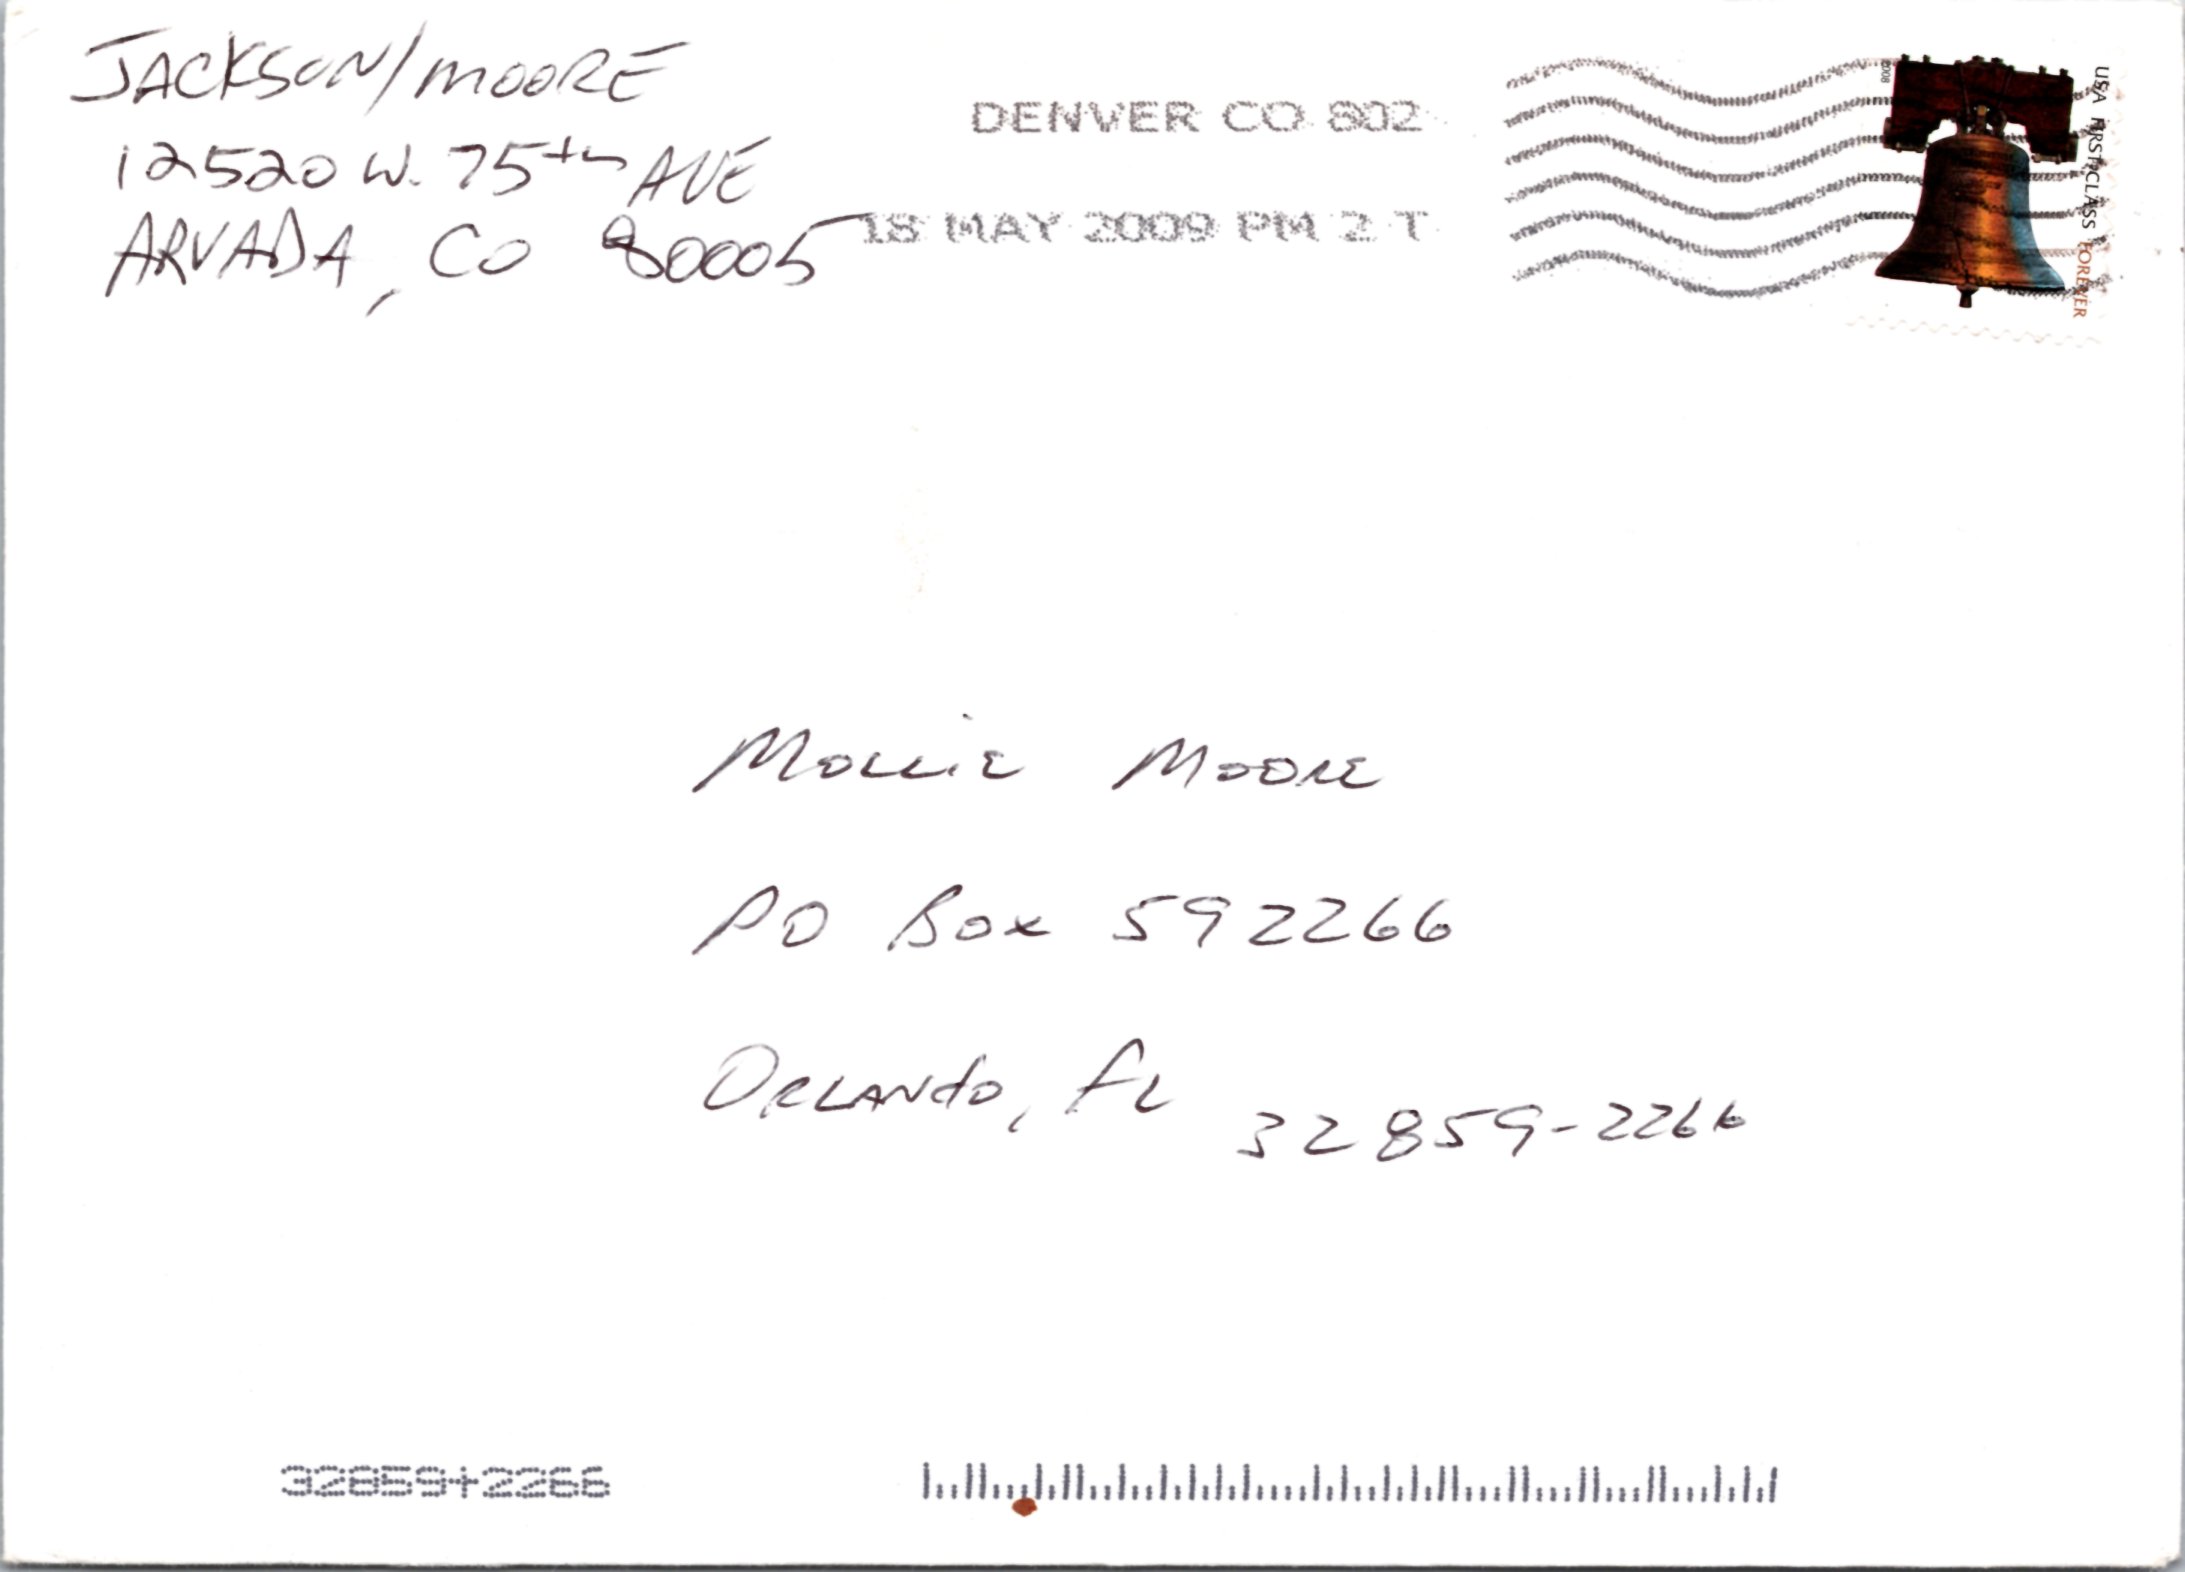 JACKSON/MOORE
12520 W. 75th AVE
ARVADA, CO 80005
DENVER CO 802
18 MAY 2009 PM 2 T
2008
USA FIRST-CLASS FOREVER
Mollie Moore
PO Box 592266
Orlando, FL 32859-2266
32859+2266